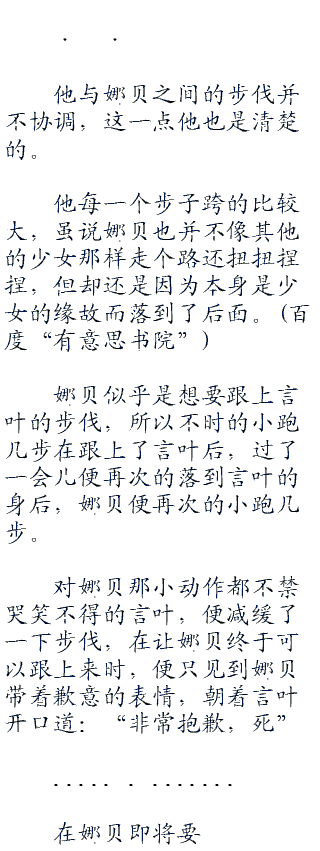 他与娜贝之间的步伐并
不协调，这一点他也是清楚
的。
他每一个步子跨的比较
大，虽说娜贝也并不像其他
的少女那样走个路还扭扭捏
捏，但却还是因为本身是少
女的缘故而落到了后面。(百
度“有意思书院”)
娜贝似乎是想要跟上言
叶的步伐，所以不时的小跑
几步在跟上了言叶后，过了
一会儿便再次的落到言叶的
身后，娜贝便再次的小跑几
步。
对娜贝那小动作都不禁
哭笑不得的言叶，便减缓了
一下步伐，在让娜贝终于可
以跟上来时，便只见到娜贝
带着歉意的表情，朝着言叶
开口道：“非常抱歉，死”
..... . .......
在娜贝即将要